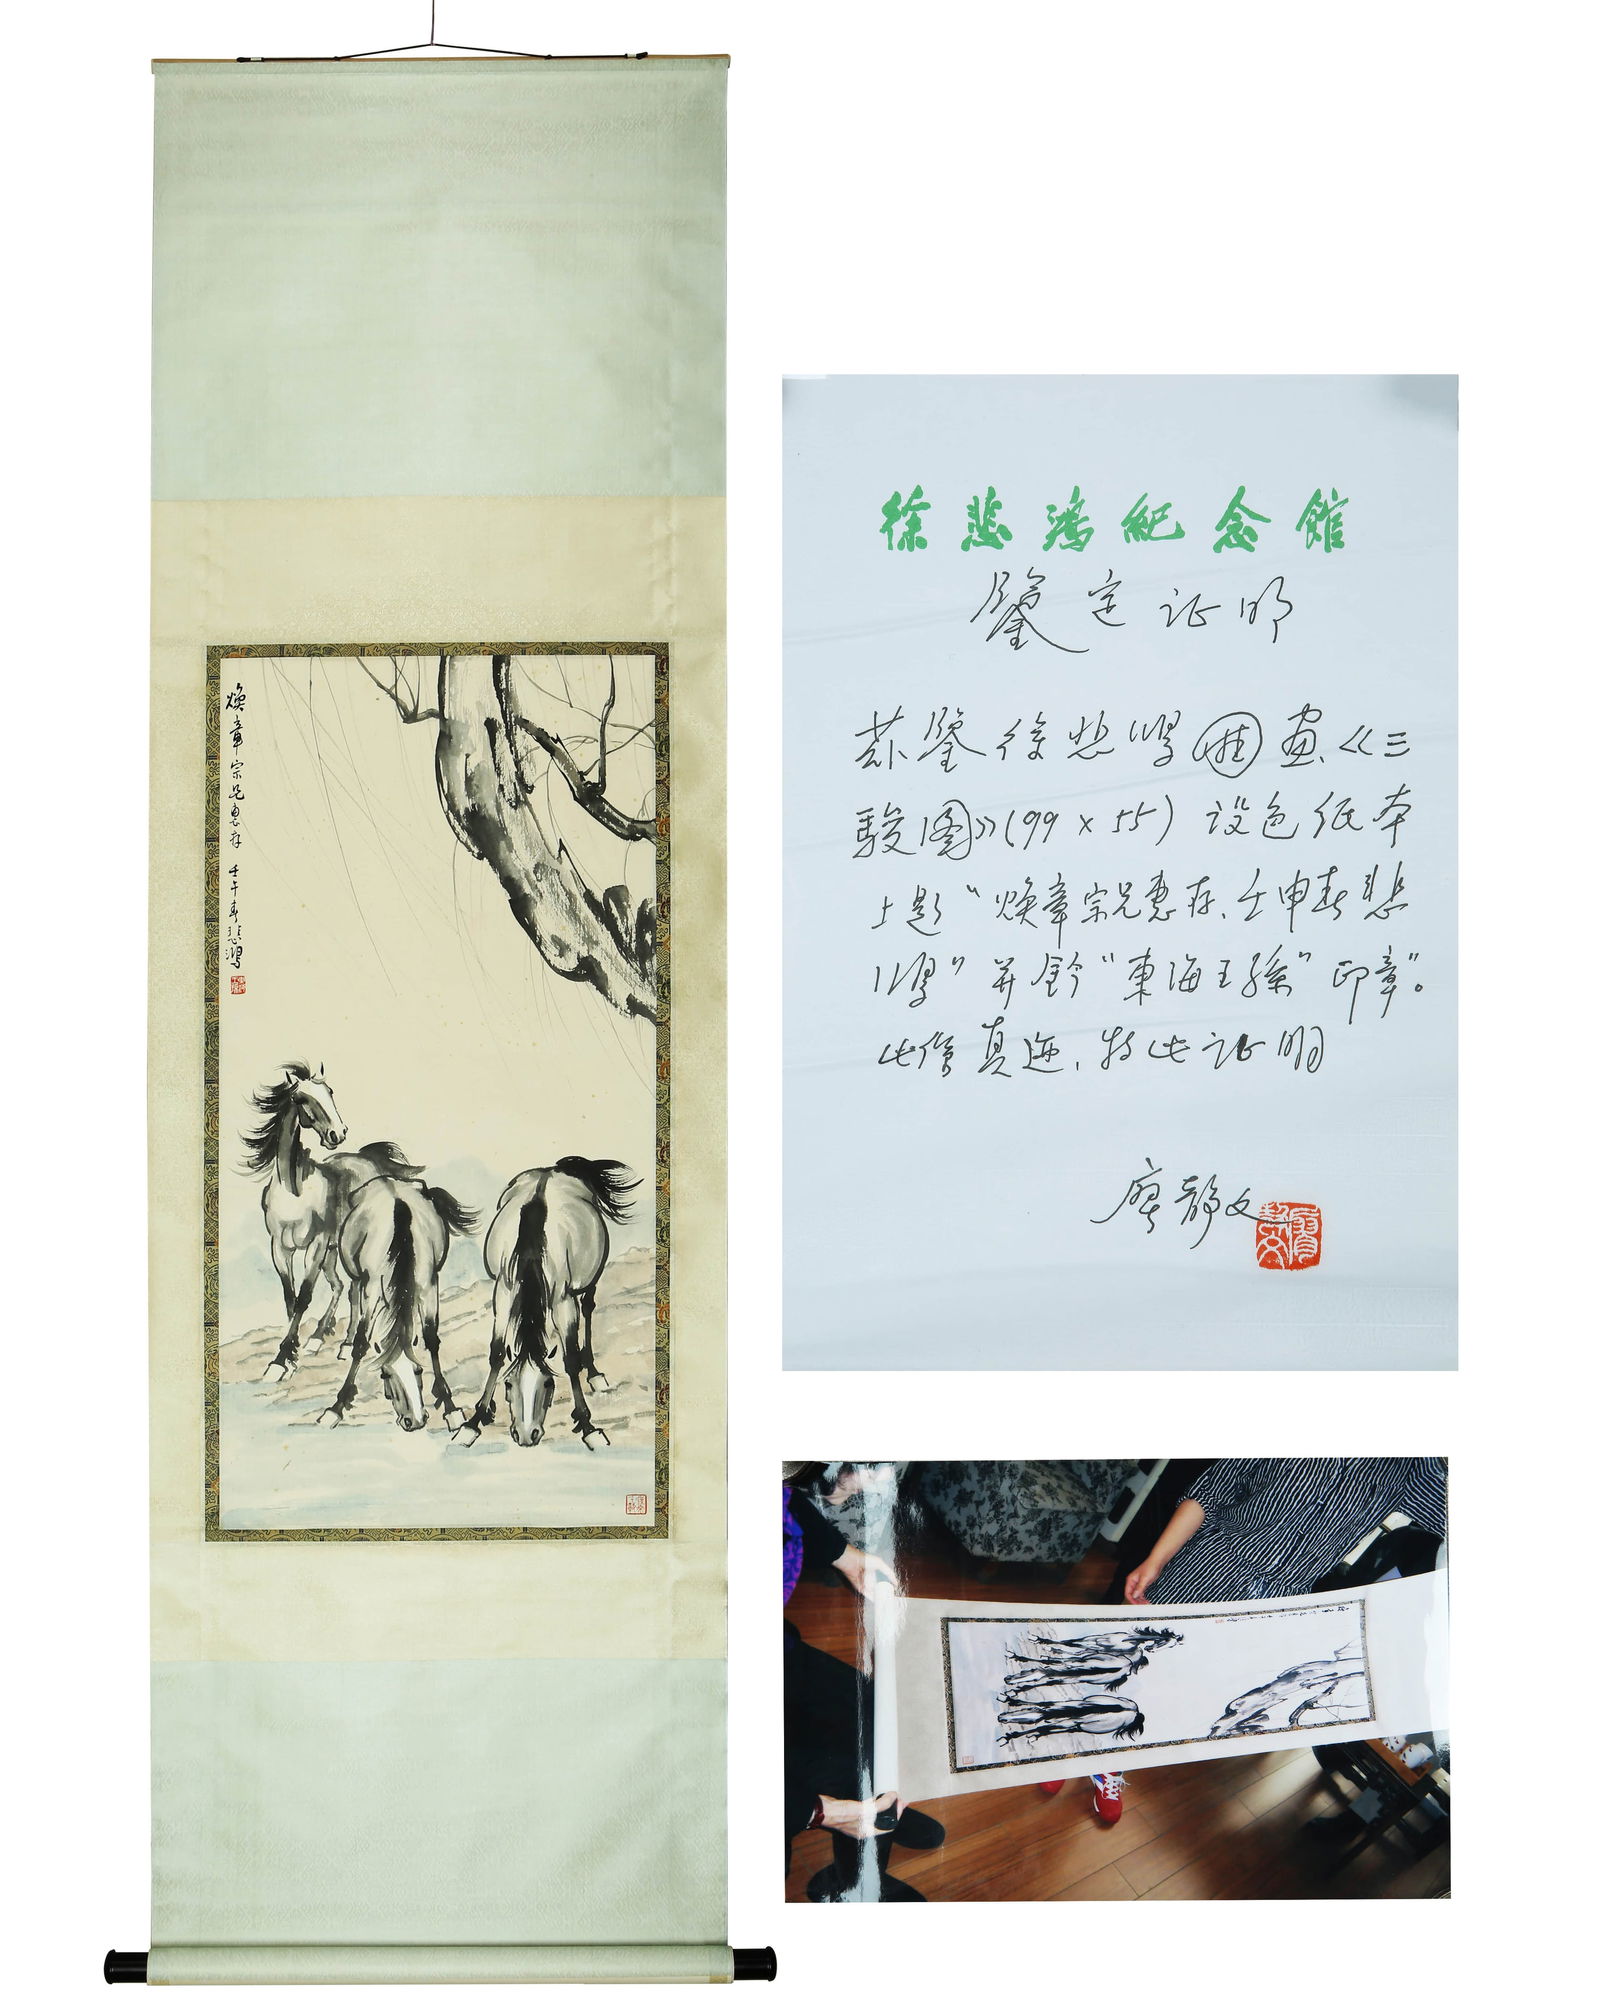 焕章宗兄惠存 壬午春悲鸿
徐悲鴻紀念館
鑒定证明
兹鉴徐悲鸿国画《三
駿图》(99×55)设色纸本
上题“焕章宗兄惠存、壬申春悲
鸿”并钤“東海王孫”印章”。
此係真迹，特此证明
廖静文